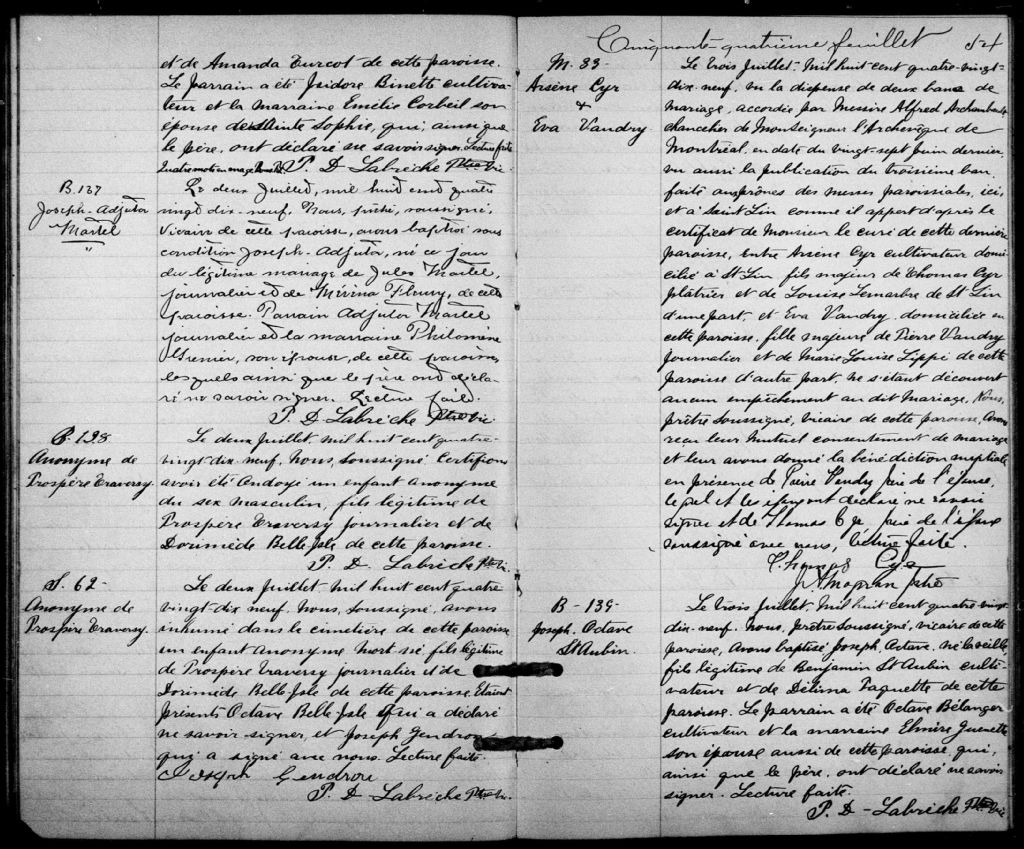 et de Amanda Turcot de cette paroisse.
Le parrain a été Isidore Binette cultiva-
teur et la marraine Emélie Corbeil son
épouse de Sainte Sophie, qui, ainsi que
le père, ont déclaré ne savoir signer. Lecture faite
Quatre mots en marge
P. D Labrèche Ptre Vic.
B. 137
Joseph-Adjutor
Martel
"
Le deux Juillet, mil huit cent quatre
vingt dix-neuf, Nous, prêtre, soussigné,
Vicaire de cette paroisse, avons baptisé sous
condition Joseph-Adjutor, né ce jour
du légitime mariage de Jules Martel,
journalier et de Mérina Fleury, de cette
paroisse. Parrain Adjutor Martel
journalier et la marraine Philomène
Grenier, son épouse, de cette paroisse
lesquels ainsi que le père ont décla-
ré ne savoir signer. Lecture faite.
P. D Labrèche Ptre Vic
B. 138
Anonyme de
Prospère Traversy.
Le deux Juillet mil huit cent quatre-
vingt-dix-neuf. Nous, soussigné Certifions
avoir été Ondoyé un enfant Anonyme
du sex Masculin, fils légitime de
Prospère Traversy journalier et de
Doriméde Belle-Isle de cette paroisse.
P. D. Labrèche Ptre Vi.
S. 62-
Anonyme de
Prospère Traversy.
Le deux Juillet mil huit cent quatre
vingt-dix neuf. Nous, soussigné, avons
inhumé dans le cimetière de cette paroisse
un enfant Anonyme Mort né fils légitime
de Prospère Traversy journalier et de
Doriméde Belle-Isle de cette paroisse. Etaient
présents Octave Belle Isle qui a déclaré
ne savoir signer, et Joseph Gendron
qui a signé avec nous. Lecture faite.
Joseph Gendron
P. D Labrèche Ptre Vi.
Cinquante-quatrième feuillet 54
M. 33
Arsène Cyr
&
Eva Vandry
Le trois Juillet Mil huit cent quatre-vingt-
dix-neuf, vu la dispense de deux bans de
mariage, accordée par Messire Alfred Archambault
chancelier de Monseigneur l'Archevêque de
Montréal, en date du vingt-sept Juin dernier,
vu aussi la publication du troisième ban
faite aux prônes des messes paroissiales, ici,
et à Saint Lin comme il appert d'après le
certificat de Monsieur le curé de cette dernière
paroisse, entre Arsène Cyr cultivateur domi-
cilié à St Lin fils majeur de Thomas Cyr
plâtrier et de Louise Lemarbre de St Lin
d'une part, et Eva Vandry domiciliée en
cette paroisse, fille majeure de Pierre Vandry
journalier et de Marie Louise Lippé de cette
paroisse d'autre part, ne s'étant découvert
aucun empêchement au dit Mariage, Nous,
prêtre soussigné, vicaire de cette paroisse, Avons
reçu leur Mutuel consentement de mariage
et leur avons donné la bénédiction nuptiale
en présence de Pierre Vandry père de l'épouse,
lequel et les époux ont déclaré ne savoir
signer et de Thomas Cyr, père de l'époux
soussigné avec nous, lecture faite.
Thomas Cyr
B - 139-
Joseph. Octave
St Aubin.
Le trois Juillet Mil huit cent quatre vingt-
dix-neuf. Nous, prêtre soussigné, vicaire de cette
paroisse, Avons baptisé Joseph, Octave, né la veille
fils légitime de Benjamin St Aubin culti-
vateur et de Délima Paquette de cette
paroisse. Le parrain a été Octave Bélanger
cultivateur et la marraine Elmire Guenette
son épouse aussi de cette paroisse qui,
ainsi que le père, ont déclaré ne savoir
signer. Lecture faite.
P. D - Labrèche Ptre Vic